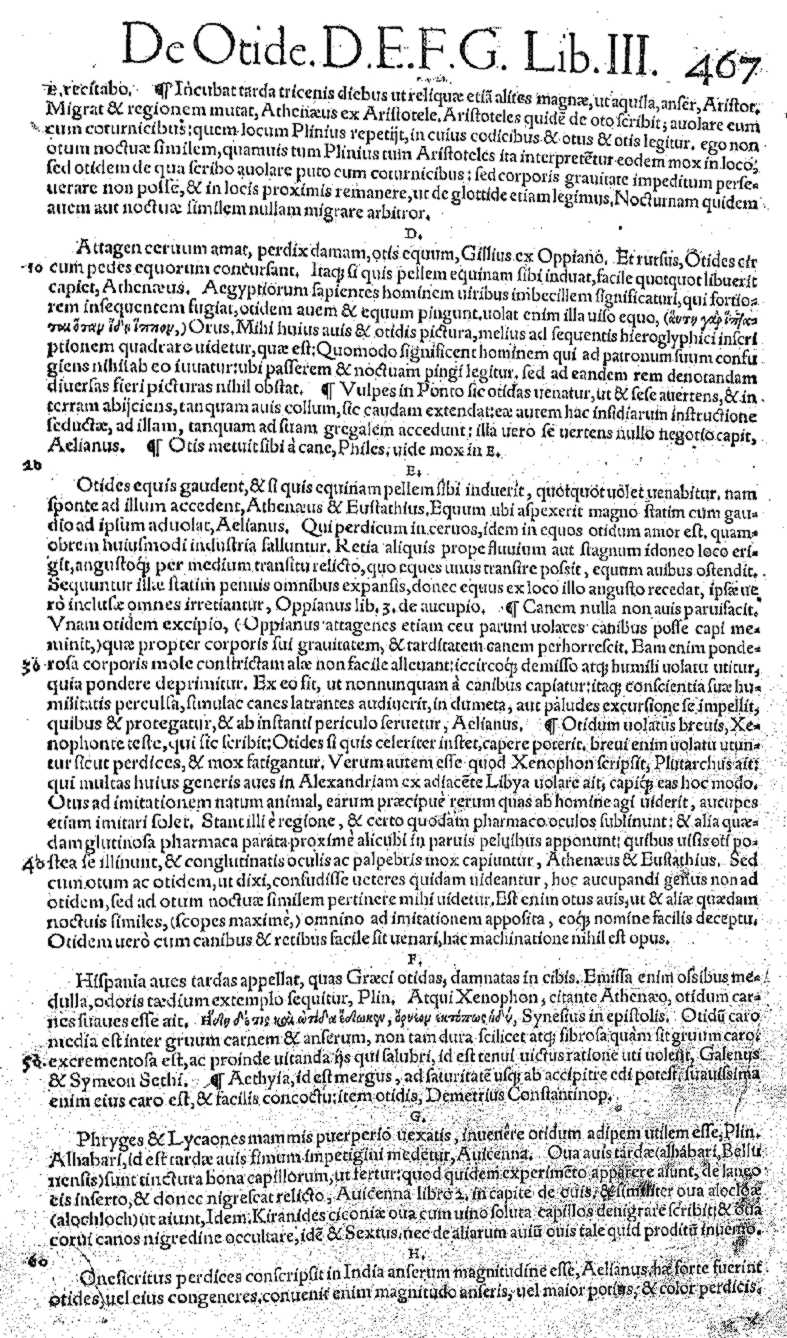 De Otide. D. E. F. G. Lib. III. 467
E. recitabo. ¶ Incubat tarda tricenis diebus ut reliquæ etiã alites magnæ, ut aquila, anser, Aristot.
Migrat & regionem mutat, Athenæus ex Aristotele. Aristoteles quidẽ de oto scribit; auolare eum
cum coturnicibus: quem locum Plinius repetijt, in cuius codicibus & otus & otis legitur. ego non
otum noctuæ similem, quamuis tum Plinius tum Aristoteles ita interpretẽtur eodem mox in loco;
sed otidem de qua scribo auolare puto cum coturnicibus: sed corporis grauitate impeditum perse-
uerare non posse, & in locis proximis remanere, ut de glottide etiam legimus. Nocturnam quidem
auem aut noctuæ similem nullam migrare arbitror.
D.
Attagen ceruum amat, perdix damam, otis equum, Gillius ex Oppiano. Et rursus, Otides cir
10 cum pedes equorum concursant. Itaq; si quis pellem equinam sibi induat, facile quotquot libuerit
capiet, Athenæus. Aegyptiorum sapientes hominem uiribus imbecillem significaturi, qui fortio-
rem insequentem fugiat, otidem auem & equum pingunt. uolat enim illa uiso equo, (αὕτη γὰρ ἵπτα-
ται ὅταν ἴδῃ ἵππον,) Orus. Mihi huius auis & otidis pictura, melius ad sequentis hieroglyphici inscri
ptionem quadrare uidetur, quæ est: Quomodo significent hominem qui ad patronum suum confu
giens nihil ab eo iuuatur: ubi passerem & noctuam pingi legitur. sed ad eandem rem denotandam
diuersas fieri picturas nihil obstat. ¶ Vulpes in Ponto sic otidas uenatur, ut & sese auertens, & in
terram abijciens, tanquam auis collum, sic caudam extendat: eæ autem hac insidiarum instructione
seductæ, ad illam, tanquam ad suam gregalem accedunt: illa uero se uertens nullo negotio capit,
Aelianus. ¶ Otis metuit sibi à cane, Philes, uide mox in E.
20
E.
Otides equis gaudent, & si quis equinam pellem sibi induerit, quotquot uolet uenabitur. nam
sponte ad illum accedent, Athenæus & Eustathius. Equum ubi aspexerit magno statim cum gau-
dio ad ipsum aduolat, Aelianus. Qui perdicum in ceruos, idem in equos otidum amor est. quam-
obrem huiusmodi industria falluntur. Retia aliquis prope fluuium aut stagnum idoneo loco eri-
git, angustoq; per medium transitu relicto, quo eques unus transire possit, equum auibus ostendit.
Sequuntur illæ statim pennis omnibus expansis, donec equus ex loco illo angusto recedat, ipsæ ue
rò inclusæ omnes irretiantur, Oppianus lib. 3. de aucupio. ¶ Canem nulla non auis paruifacit.
Vnam otidem excipio, (Oppianus attagenes etiam ceu parum uolares canibus posse capi me-
minit,) quæ propter corporis sui grauitatem, & tarditatem canem perhorrescit. Eam enim ponde-
30 rosa corporis mole constrictam alæ non facile alleuant: iccircoq; demisso atq; humili uolatu utitur,
quia pondere deprimitur. Ex eo fit, ut nonnunquam à canibus capiatur: itaq; conscientia suæ hu-
militatis perculsa, simulac canes latrantes audiuerit, in dumeta, aut paludes excursione se impellit,
quibus & protegatur, & ab instanti periculo seruetur, Aelianus. ¶ Otidum uolatus breuis, Xe-
nophonte teste, qui sic scribit: Otides si quis celeriter instet, capere poterit. breui enim uolatu utun-
tur sicut perdices, & mox fatigantur. Verum autem esse quod Xenophon scripsit, Plutarchus ait:
qui multas huius generis aues in Alexandriam ex adiacẽte Libya uolare ait, capiq; eas hoc modo.
Otus ad imitationem natum animal, earum præcipuè rerum quas ab homine agi uiderit, aucupes
etiam imitari solet. Stant illi è regione, & certo quodam pharmaco oculos sublinunt: & alia quæ-
dam glutinosa pharmaca parata proximè alicubi in paruis peluibus apponunt: quibus uisis oti po-
40 stea se illinunt, & conglutinatis oculis ac palpebris mox capiuntur, Athenæus & Eustathius. Sed
cum otum ac otidem, ut dixi, confudisse ueteres quidam uideantur, hoc aucupandi genus non ad
otidem, sed ad otum noctuæ similem pertinere mihi uidetur. Est enim otus auis, ut & aliæ quædam
noctuis similes, (scopes maximè,) omnino ad imitationem apposita, eoq; nomine facilis deceptu.
Otidem uerò cum canibus & retibus facile sit uenari, hac machinatione nihil est opus.
F.
Hispania aues tardas appellat, quas Græci otidas, damnatas in cibis. Emissa enim ossibus me-
dulla, odoris tædium extemplo sequitur, Plin. Atqui Xenophon, citante Athenæo, otidum car-
nes suaues esse ait. Synesius in epistolis. Otidũ caro
media est inter gruum carnem & anserum, non tam dura scilicet atq; fibrosa quàm sit gruium caro:
50 excrementosa est, ac proinde uitanda ijs qui salubri, id est tenui uictus ratione uti uolent, Galenus
& Symeon Sethi. ¶ Aethyia, id est mergus, ad saturitatẽ usq; ab accipitre edi potest, suauissima
enim eius caro est, & facilis concoctu: item otidis, Demetrius Constantinop.
G.
Phryges & Lycaones mammis puerperio uexatis, inuenere otidum adipem utilem esse, Plin.
Alhabari, id est tardæ auis fimum impetigini medetur, Auicenna. Oua auis tardæ (alhabari, Bellu
nensis) sunt tinctura bona capillorum, ut fertur: quod quidem experimẽto apparere aiunt, de lanæo
eis inserto, & donec nigrescat relicto, Auicenna libro 2. in capite de ouis, & similiter oua alocloæ
(alochloch) ut aiunt, Idem. Kiranides ciconiæ oua cum uino soluta capillos denigrare scribit: & oua
corui canos nigredine occultare, idẽ & Sextus. nec de aliarum auiũ ouis tale quid proditũ inuenio.
60
H.
Onesicritus perdices conscripsit in India anserum magnitudine esse, Aelianus. hæ forte fuerint
otides, uel eius congeneres. conuenit enim magnitudo anseris, uel maior potius, & color perdicis.